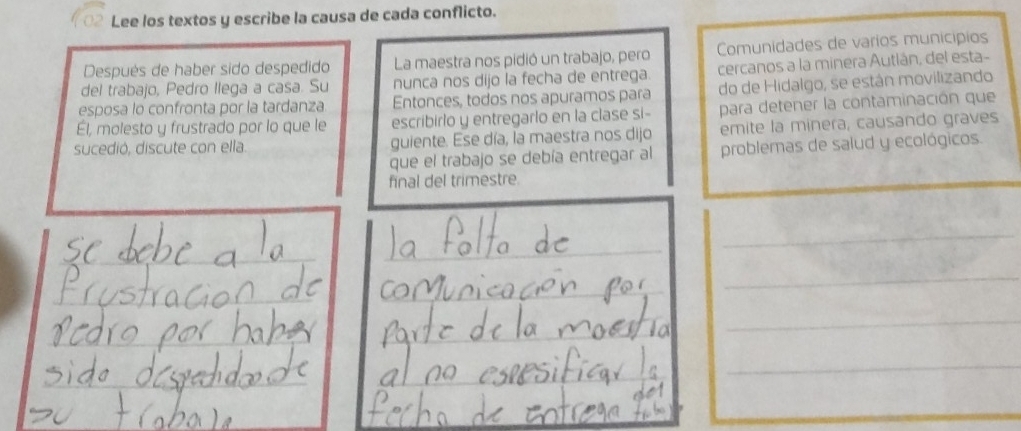 02 Lee los textos y escribe la causa de cada conflicto.
Después de haber sido despedido
del trabajo, Pedro llega a casa. Su
esposa lo confronta por la tardanza
Él, molesto y frustrado por lo que le
sucedió, discute con ella.
La maestra nos pidió un trabajo, pero
nunca nos dijo la fecha de entrega.
Entonces, todos nos apuramos para
escribirlo y entregarlo en la clase si-
guiente. Ese día, la maestra nos dijo
que el trabajo se debía entregar al
final del trimestre.
Comunidades de varios municipios
cercanos a la minera Autlán, del esta-
do de Hidalgo, se están movilizando
para detener la contaminación que
emite la minera, causando graves
problemas de salud y ecológicos.
se debe a la
frustracion de
Pedro por haber
sido despedido de
su trabajo
la falta de
comunicacion por
parte de la maestra
al no espesificar la
fecha de entrega del